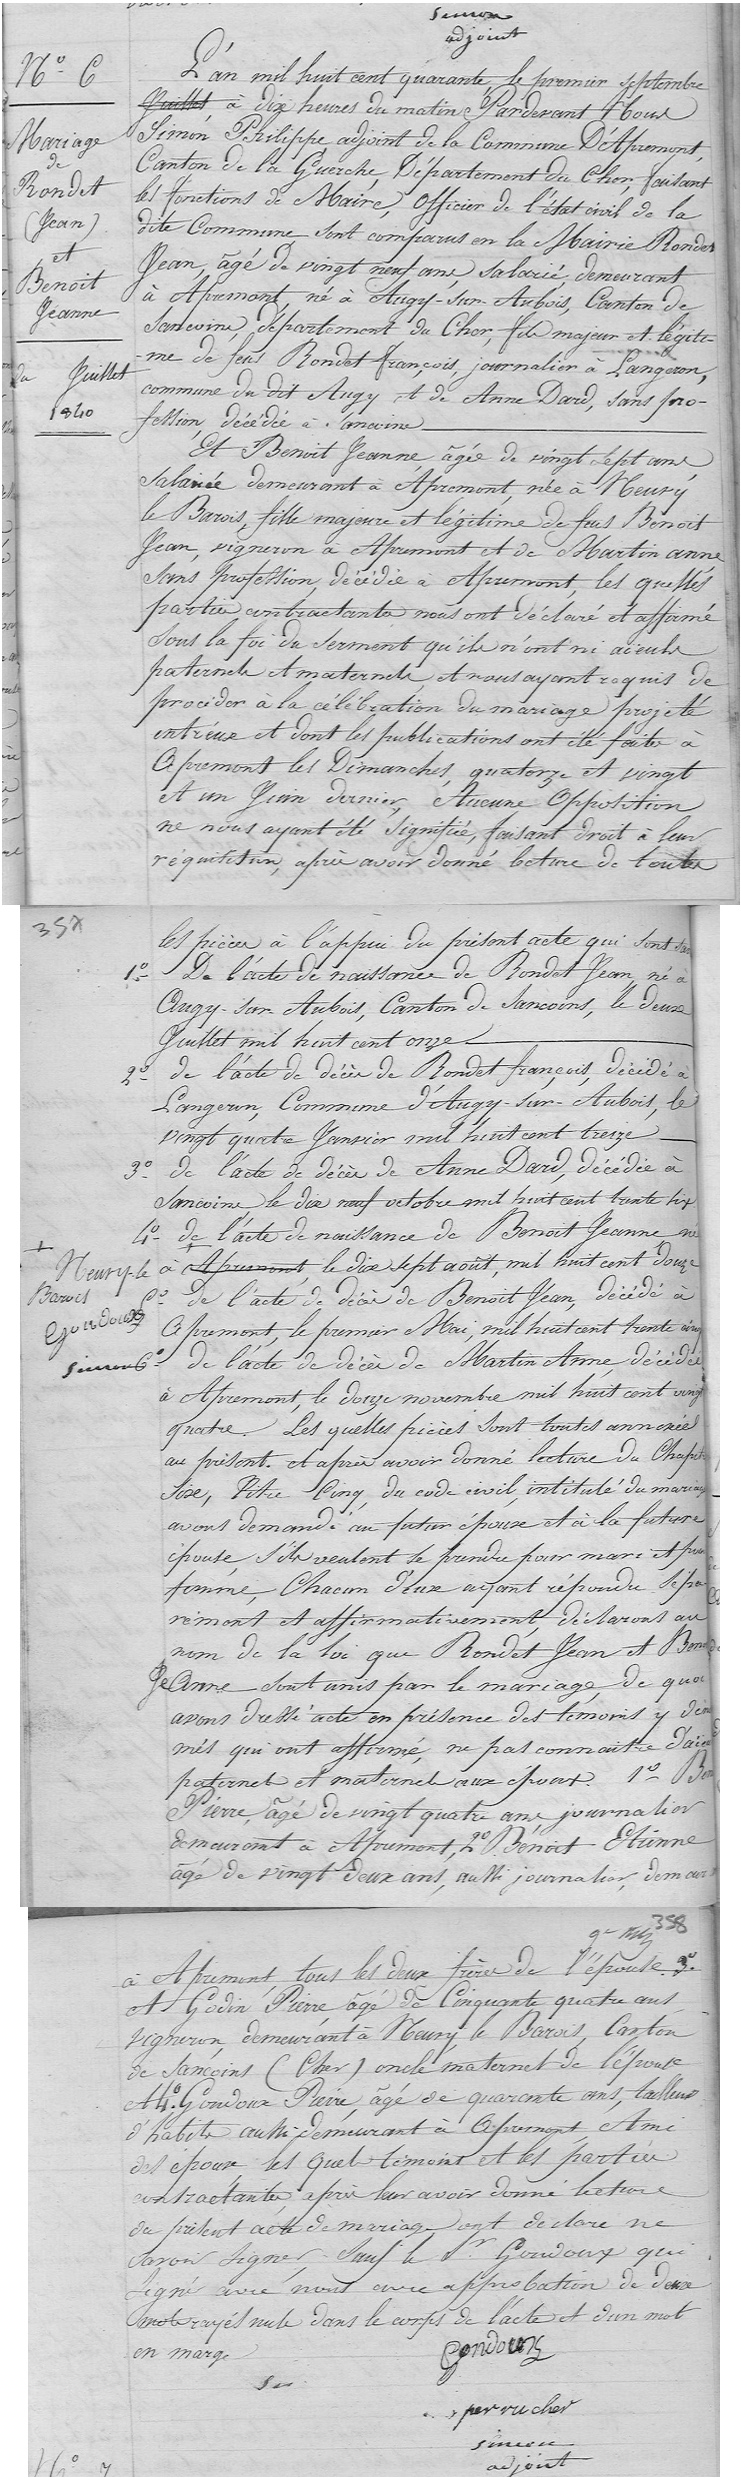 Simon
adjoint
N° 6
Mariage
de
Rondet
(Jean)
et
Benoit
Jeanne
du Juillet
1840
L'an mil huit cent quarante, le premier septembre
Juillet, à dix heures du matin Pardevant Nous
Simon Philippe adjoint de la Commune D'Apremont,
Canton de la Guerche, Département du Cher, faisant
les fonctions de Maire, Officier de l'état civil de la
dite Commune sont comparus en la Mairie Rondet
Jean, âgé de vingt neuf ans, salarié, demeurant
à Apremont, né à Augy-sur-Aubois, Canton de
Sancoins, département du Cher, fils majeur et légiti-
-me de feus Rondet françois, journalier à Langeron,
commune du dit Augy et de Anne Dard, sans pro-
fession, décédée à Sancoins
Et Benoit Jeanne, âgée de vingt sept ans
salariée demeurant à Apremont, née à Neuvy
le Barois, fille majeure et légitime de feus Benoit
Jean, vigneron à Apremont et de Martin anne
sans profession, décédée à Apremont, les quelles
parties contractantes nous ont déclaré et affirmé
sous la foi du serment qu'ils n'ont ni aïeuls
paternels et maternels, et nous ayant requis de
procéder à la célébration du mariage projeté
entr'eux et dont les publications ont été faites à
Apremont les Dimanches, quatorze et vingt
et un Juin dernier, Aucune Opposition
ne nous ayant été signifiée, faisant droit à leur
réquisition, après avoir donné lecture de toutes
357
les pièces à l'appui du présent acte qui sont
1° De l'acte de naissance de Rondet Jean, né à
Augy-sur-Aubois, Canton de Sancoins, le deux
Juillet mil huit cent onze
2° de l'acte de décès de Rondet françois, décédé à
Langeron, Commune d'Augy-sur-Aubois, le
vingt quatre Janvier mil huit cent treize
3° de l'acte de décès de Anne Dard, décédée à
Sancoins, le dix neuf octobre mil huit cent trente six
4° de l'acte de naissance de Benoit Jeanne née
+
Neuvy-le
Barois
Goudoux
Simon
à Apremont, le dix sept août, mil huit cent douze
5° de l'acte de décès de Benoit Jean, décédé à
Apremont, le premier Mai, mil huit cent trente cinq
6° de l'acte de décès de Martin Anne, décédée
à Apremont, le douze novembre mil huit cent vingt
quatre. Les quelles pièces sont toutes annexées
au présent. et après avoir donné lecture du Chapitre
Six, titre Cinq, du code civil, intitulé du mariage
avons demandé au futur époux et à la future
épouse, s'ils veulent se prendre pour mari et pour
femme, Chacun d'eux ayant répondu sépa
rément et affirmativement, déclarons au
nom de la loi que Rondet Jean et Benoit
Jeanne sont unis par le mariage, de quoi
avons dressé acte en présence des témoins y dénom
més qui ont affirmé, ne pas connaitre d'aïeuls
paternel et maternel aux époux. 1° Benoit
Pierre, âgé de vingt quatre ans journalier
demeurant à Apremont, 2° Bénoit Etienne
âgé de vingt deux ans, aussi journalier, demeurant
358
à Apremont, tous les deux frères de l'épouse 3°
et Godin Pierre âgé de Cinquante quatre ans
vigneron, demeurant à Neuvy le Barois, Canton
de Sancoins (Cher) oncle maternel de l'épouse
et 4° Goudoux Pierre, âgé de quarante ans, tailleur
d'habits aussi demeurant à Apremont, Ami
des époux les quel témoins et les parties
contractantes, après leur avoir donné lecture
du présent acte de mariage ont déclaré ne
savoir signer, Sauf le Sr Goudoux qui
signé avec nous avec approbation de deux
mots rayés nuls dans le corps de l'acte et d'un mot
en marge
Goudoux
perrucher
Simon
adjoint